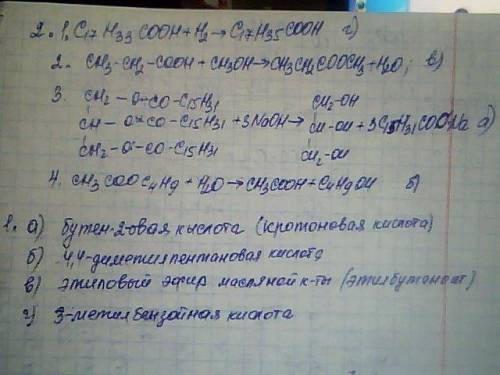 2. 1. C17H33COOH + H2 → C17H35COOH г)
2. CH3-CH2-COOH + CH3OH → CH3CH2COOCH3 + H2O; в)
3. CH2 - O - CO - C15H31 CH2-OH
CH - O - CO - C15H31 + 3NaOH → CH-OH + 3C15H31COONa д)
CH2 - O - CO - C15H31 CH2-OH
4. CH3COOC4H9 + H2O → CH3COOH + C4H9OH б)
1. а) бутен-2-овая кислота (кротоновая кислота)
б) 4,4-диметилпентановая кислота
в) этиловый эфир масляной к-ты (этилбутаноат)
г) 3-метилбензойная кислота